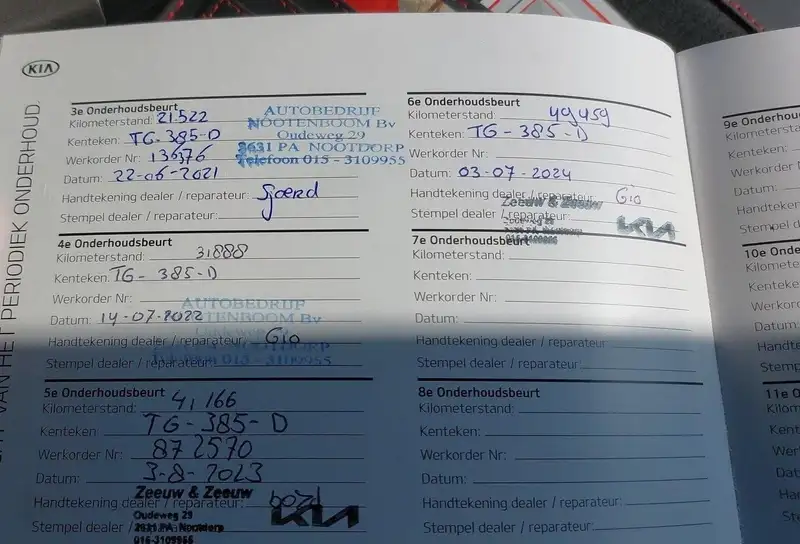 KIA
VAN HET PERIODIEK ONDERHOUD.
3e Onderhoudsbeurt
Kilometerstand: 21.522
Kenteken: TG-385-D
Werkorder Nr: 136576
Datum: 22-06-2021
Handtekening dealer / reparateur: Sjoerd
Stempel dealer / reparateur:
AUTOBEDRIJF
NOOTENBOOM Bv
Oudeweg 29
2631 PA NOOTDORP
Telefoon 015 - 3109955
4e Onderhoudsbeurt
Kilometerstand: 31888
Kenteken: TG-385-D
Werkorder Nr:
Datum: 14-07-2022
Handtekening dealer / reparateur: Gio
Stempel dealer / reparateur:
AUTOBEDRIJF
NOOTENBOOM Bv
Oudeweg 29
2631 PA NOOTDORP
Telefoon 015 - 3109955
5e Onderhoudsbeurt
Kilometerstand: 41166
Kenteken: TG-385-D
Werkorder Nr: 872570
Datum: 3-8-2023
Handtekening dealer / reparateur:
Stempel dealer / reparateur:
Zeeuw & Zeeuw
Oudeweg 29
2631 PA Nootdorp
015-3109955
KIA
6e Onderhoudsbeurt
Kilometerstand: 49459
Kenteken: TG-385-D
Werkorder Nr:
Datum: 03-07-2024
Handtekening dealer / reparateur: Gio
Stempel dealer / reparateur:
Zeeuw & Zeeuw
Oudeweg 29
2631 PA Nootdorp
015-3109955
KIA
7e Onderhoudsbeurt
Kilometerstand:
Kenteken:
Werkorder Nr:
Datum:
Handtekening dealer / reparateur:
Stempel dealer / reparateur:
8e Onderhoudsbeurt
Kilometerstand:
Kenteken:
Werkorder Nr:
Datum:
Handtekening dealer / reparateur:
Stempel dealer / reparateur:
9e Onderhoudsb
Kilometersta
Kenteken:
Werkorder N
Datum:
Handteken
Stempel d
10e Onde
Kilomete
Kenteke
Werkor
Datum:
Handt
Stemp
11e O
Kilom
Kent
Wer
Dat
Han
Ste